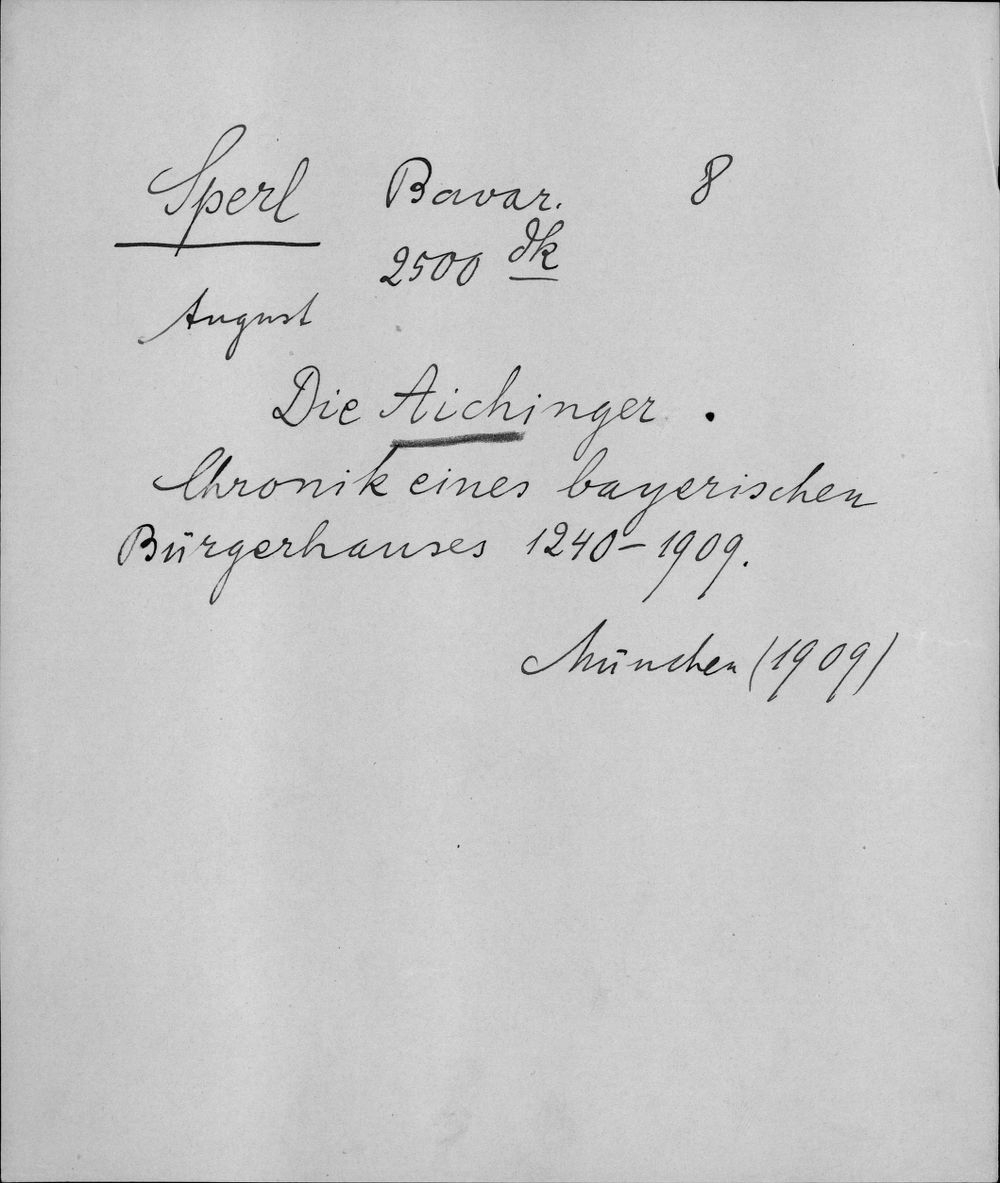 Sperl Bavar. 8
2500 dk
August
Die Aichinger.
Chronik eines bayerischen
Bürgerhauses 1240-1909.
München (1909)